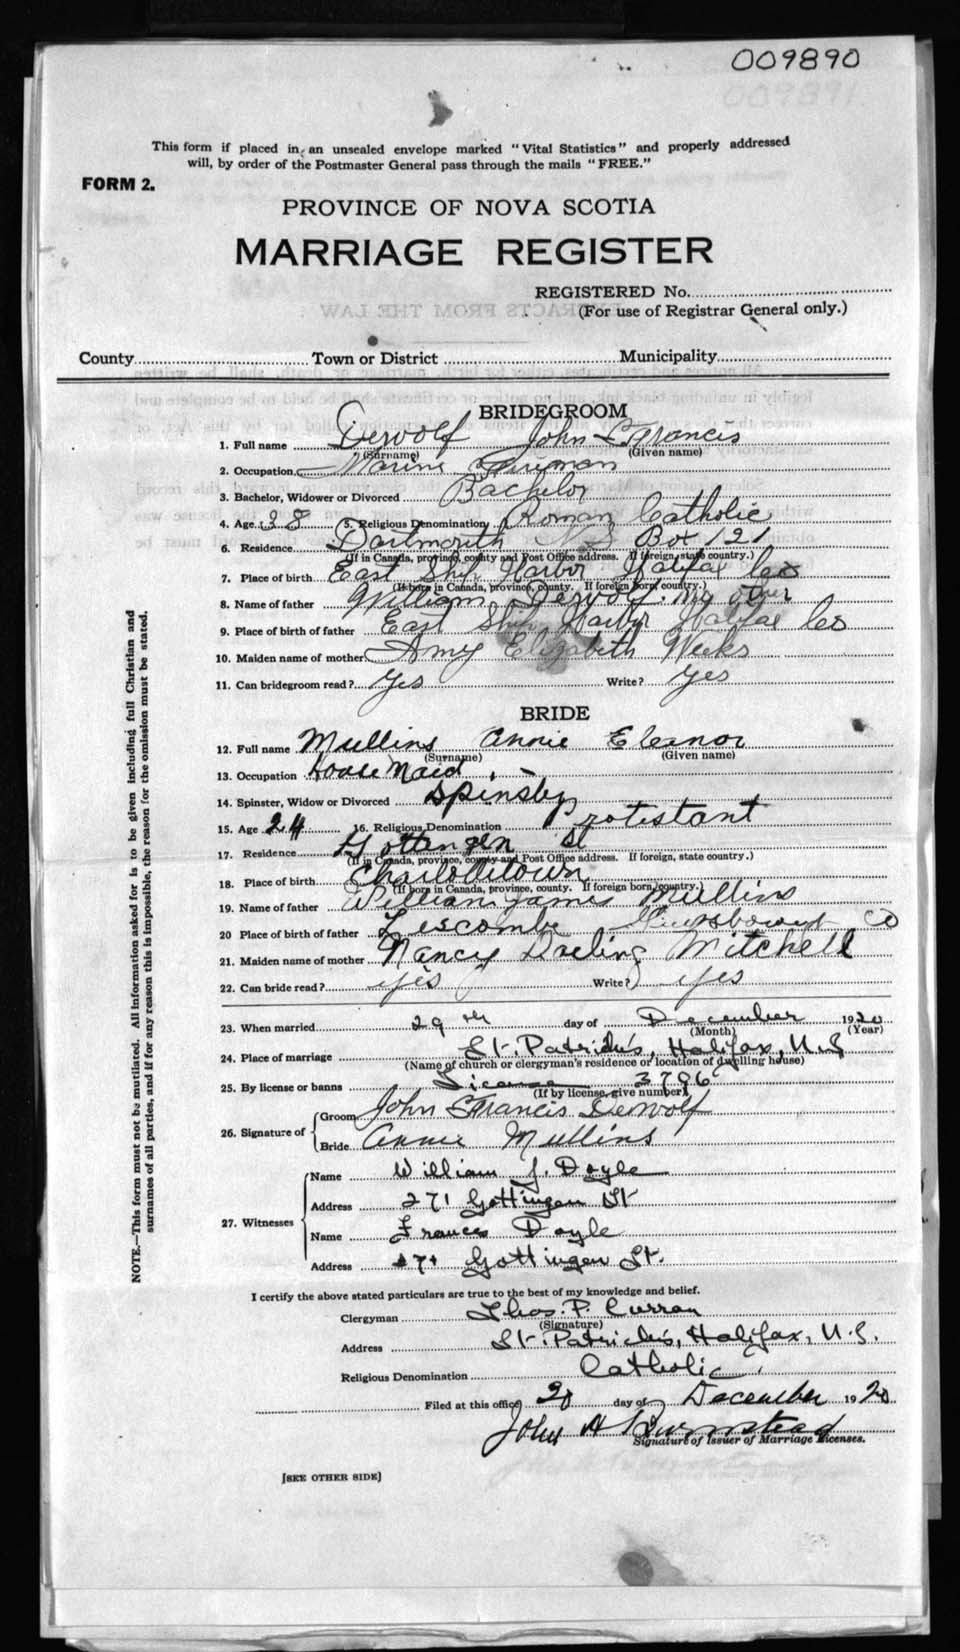 009890
This form if placed in an unsealed envelope marked "Vital Statistics" and properly addressed
will, by order of the Postmaster General pass through the mails "FREE."
FORM 2.
PROVINCE OF NOVA SCOTIA
MARRIAGE REGISTER
REGISTERED No.
(For use of Registrar General only.)
County Town or District Municipality
BRIDEGROOM
1. Full name Dewolf John Francis
(Surname) (Given name)
2. Occupation Marine Fireman
3. Bachelor, Widower or Divorced Bachelor
4. Age 38 5. Religious Denomination Roman Catholic
6. Residence Dartmouth N S Box 121
(If in Canada, province, county and Post Office address. If foreign, state country.)
7. Place of birth East Ship Harbor Halifax Co
(If born in Canada, province, county. If foreign born, country.)
8. Name of father William Dewolf
9. Place of birth of father East Ship Harbor Halifax Co
10. Maiden name of mother Amy Elizabeth Weeks
11. Can bridegroom read? Yes Write? Yes
BRIDE
12. Full name Mullins Annie Eleanor
(Surname) (Given name)
13. Occupation House Maid
14. Spinster, Widow or Divorced
15. Age 24 16. Religious Denomination Protistant
17. Residence Gottengen St
(If in Canada, province, county and Post Office address. If foreign, state country.)
18. Place of birth Charlottetown
(If born in Canada, province, county. If foreign born, country.)
19. Name of father William James Mullins
20 Place of birth of father Liscombe Co
21. Maiden name of mother Nancy Darling Mitchell
22. Can bride read? yes Write? yes
23. When married 29th day of December 1920
(Month) (Year)
24. Place of marriage St. Patrick's, Halifax, N.S
(Name of church or clergyman's residence or location of dwelling house)
25. By license or banns License 3796
(If by license, give number)
26. Signature of Groom John Francis Dewolf
Bride Annie Mullins
27. Witnesses Name William J. Doyle
Address 271 Gottingen St
Name Frances Doyle
Address 271 Gottingen St.
I certify the above stated particulars are true to the best of my knowledge and belief.
Clergyman Thos. P. Curran
(Signature)
Address St. Patrick's, Halifax, N.S.
Religious Denomination Catholic
Filed at this office 20 day of December 1920
John H
Signature of Issuer of Marriage Licenses.
[SEE OTHER SIDE]
NOTE.—This form must not be mutilated. All information asked for is to be given including full Christian and
surnames of all parties, and if for any reason this is impossible, the reason for the omission must be stated.